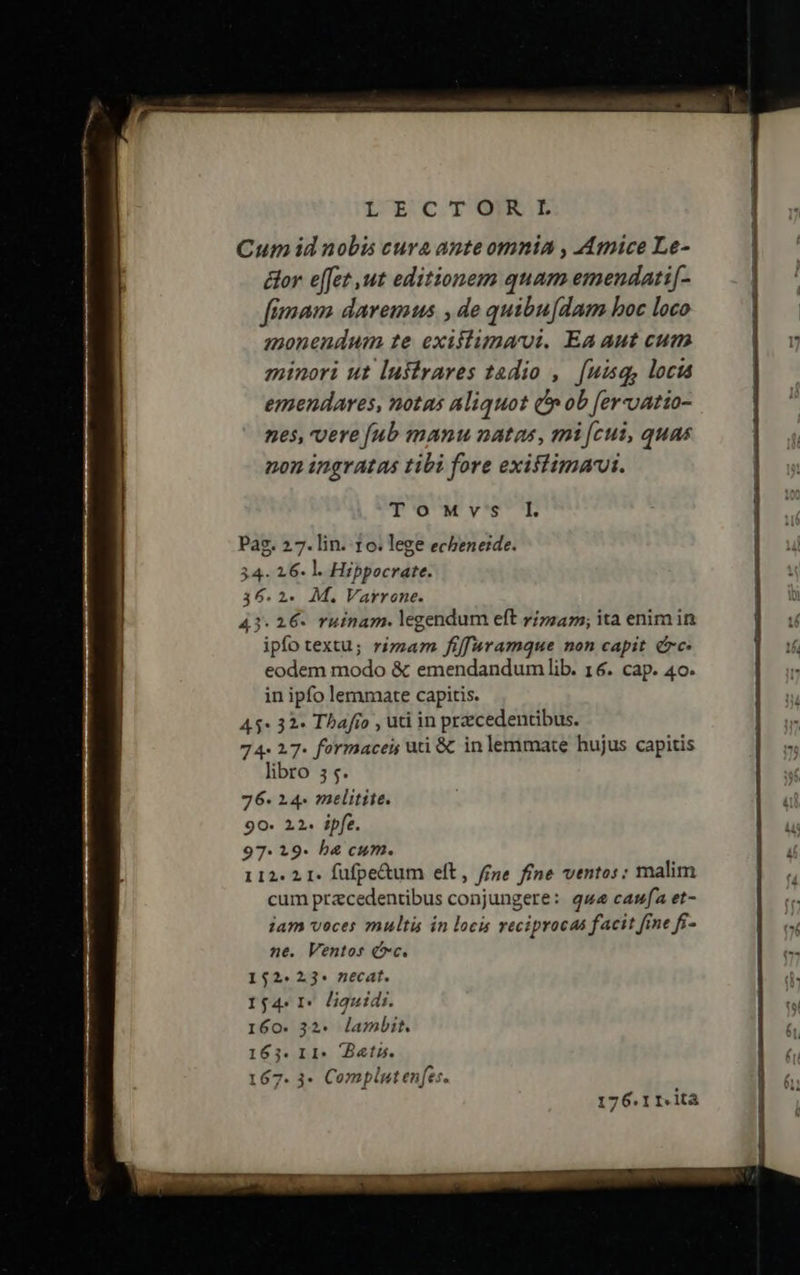 LECTORI.
Cum id nobis curæ ante omnia, Amice Le-
ctor esset, ut editionem quam emendatiſ-
ſimam daremus, de quibuſdam hoc loco
monendum te existimavi. Ea aut cum
minori ut lustrares tædio, ſuisq; locis
emendares, notas aliquot & obſervatio-
nes, vere ſub manu natas, miſcui, quas
non ingratas tibi fore existimavi.
TOMVS I.
Pag. 27. lin. 10. lege echeneide.
34. 26. l. Hippocrate.
36. 2. M. Varrone.
43. 26. ruinam. legendum eſt rimam; ita enim in
ipſo textu; rimam fiſſuramque non capit &c.
eodem modo & emendandum lib. 16. cap. 40.
in ipſo lemmate capitis.
45. 32. Thaſio, uti in præcedentibus.
74. 27. formaceis uti & in lemmate hujus capitis
libro 35.
76. 24. melitite.
90. 22. ipſe.
97. 29. hæ cum.
112. 21. ſuſpectum eſt, ſine fine ventos: malim
cum præcedentibus conjungere: quæ cauſa et-
iam voces multis in locis reciprocas facit ſine fi-
ne. Ventos &c.
152. 23. necat.
154. 1. liquidi.
160. 32. lambit.
163. 11. Bætis.
167. 3. Complutenſes.
176. 11. ita